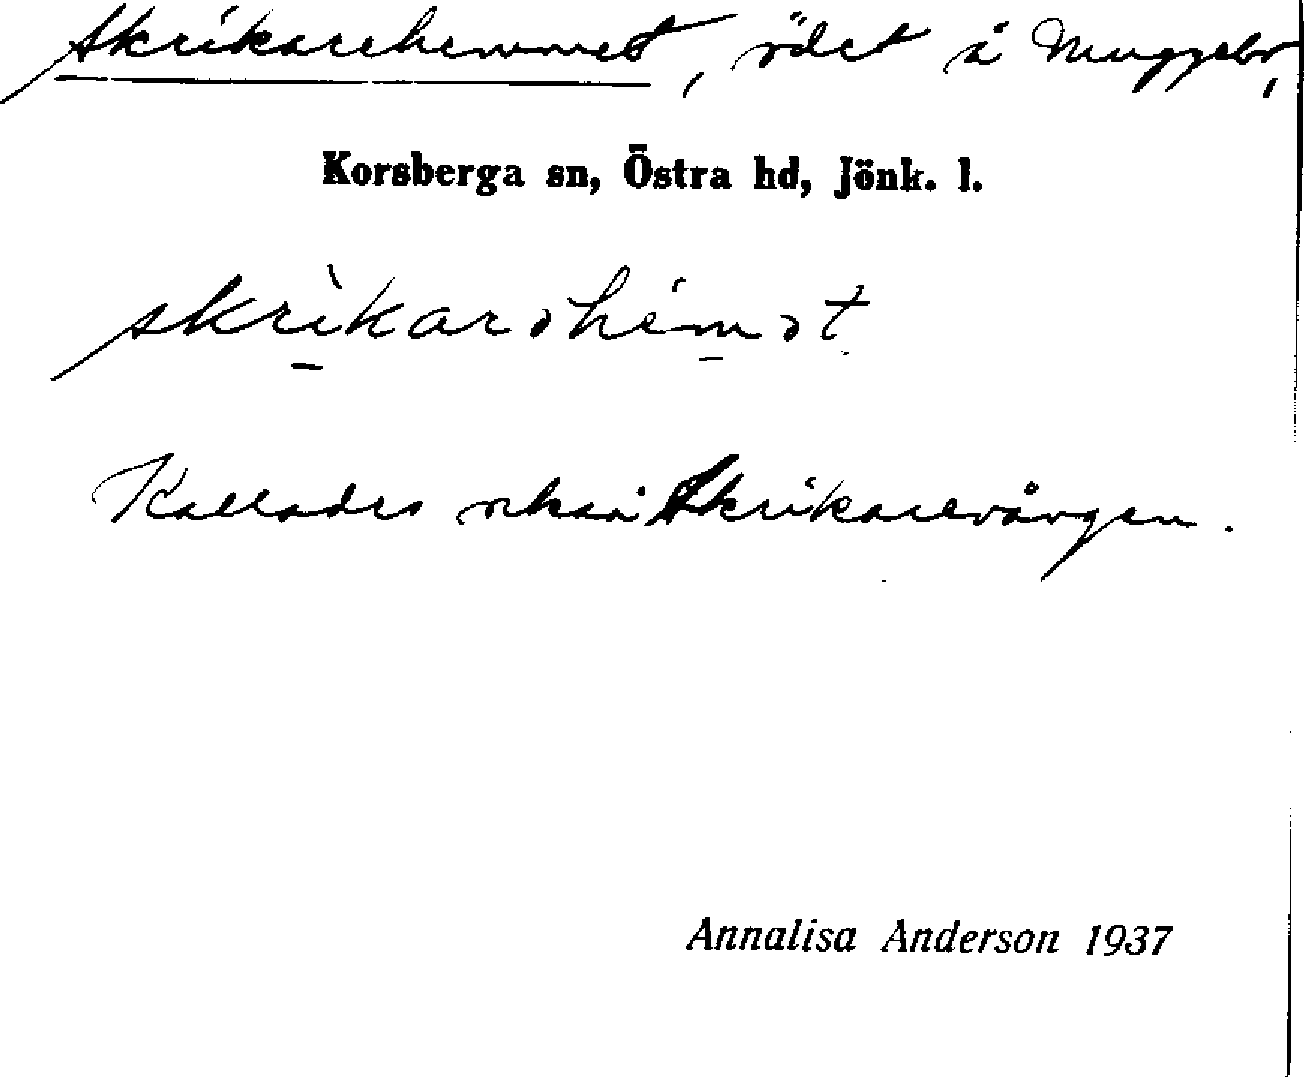 Skrikarehemmet, ödet å Muggebo,
Korsberga sn, Östra hd, Jönk. l.
skrìkarəhémət
Kallades också Skrikarevången.
Annalisa Anderson 1937